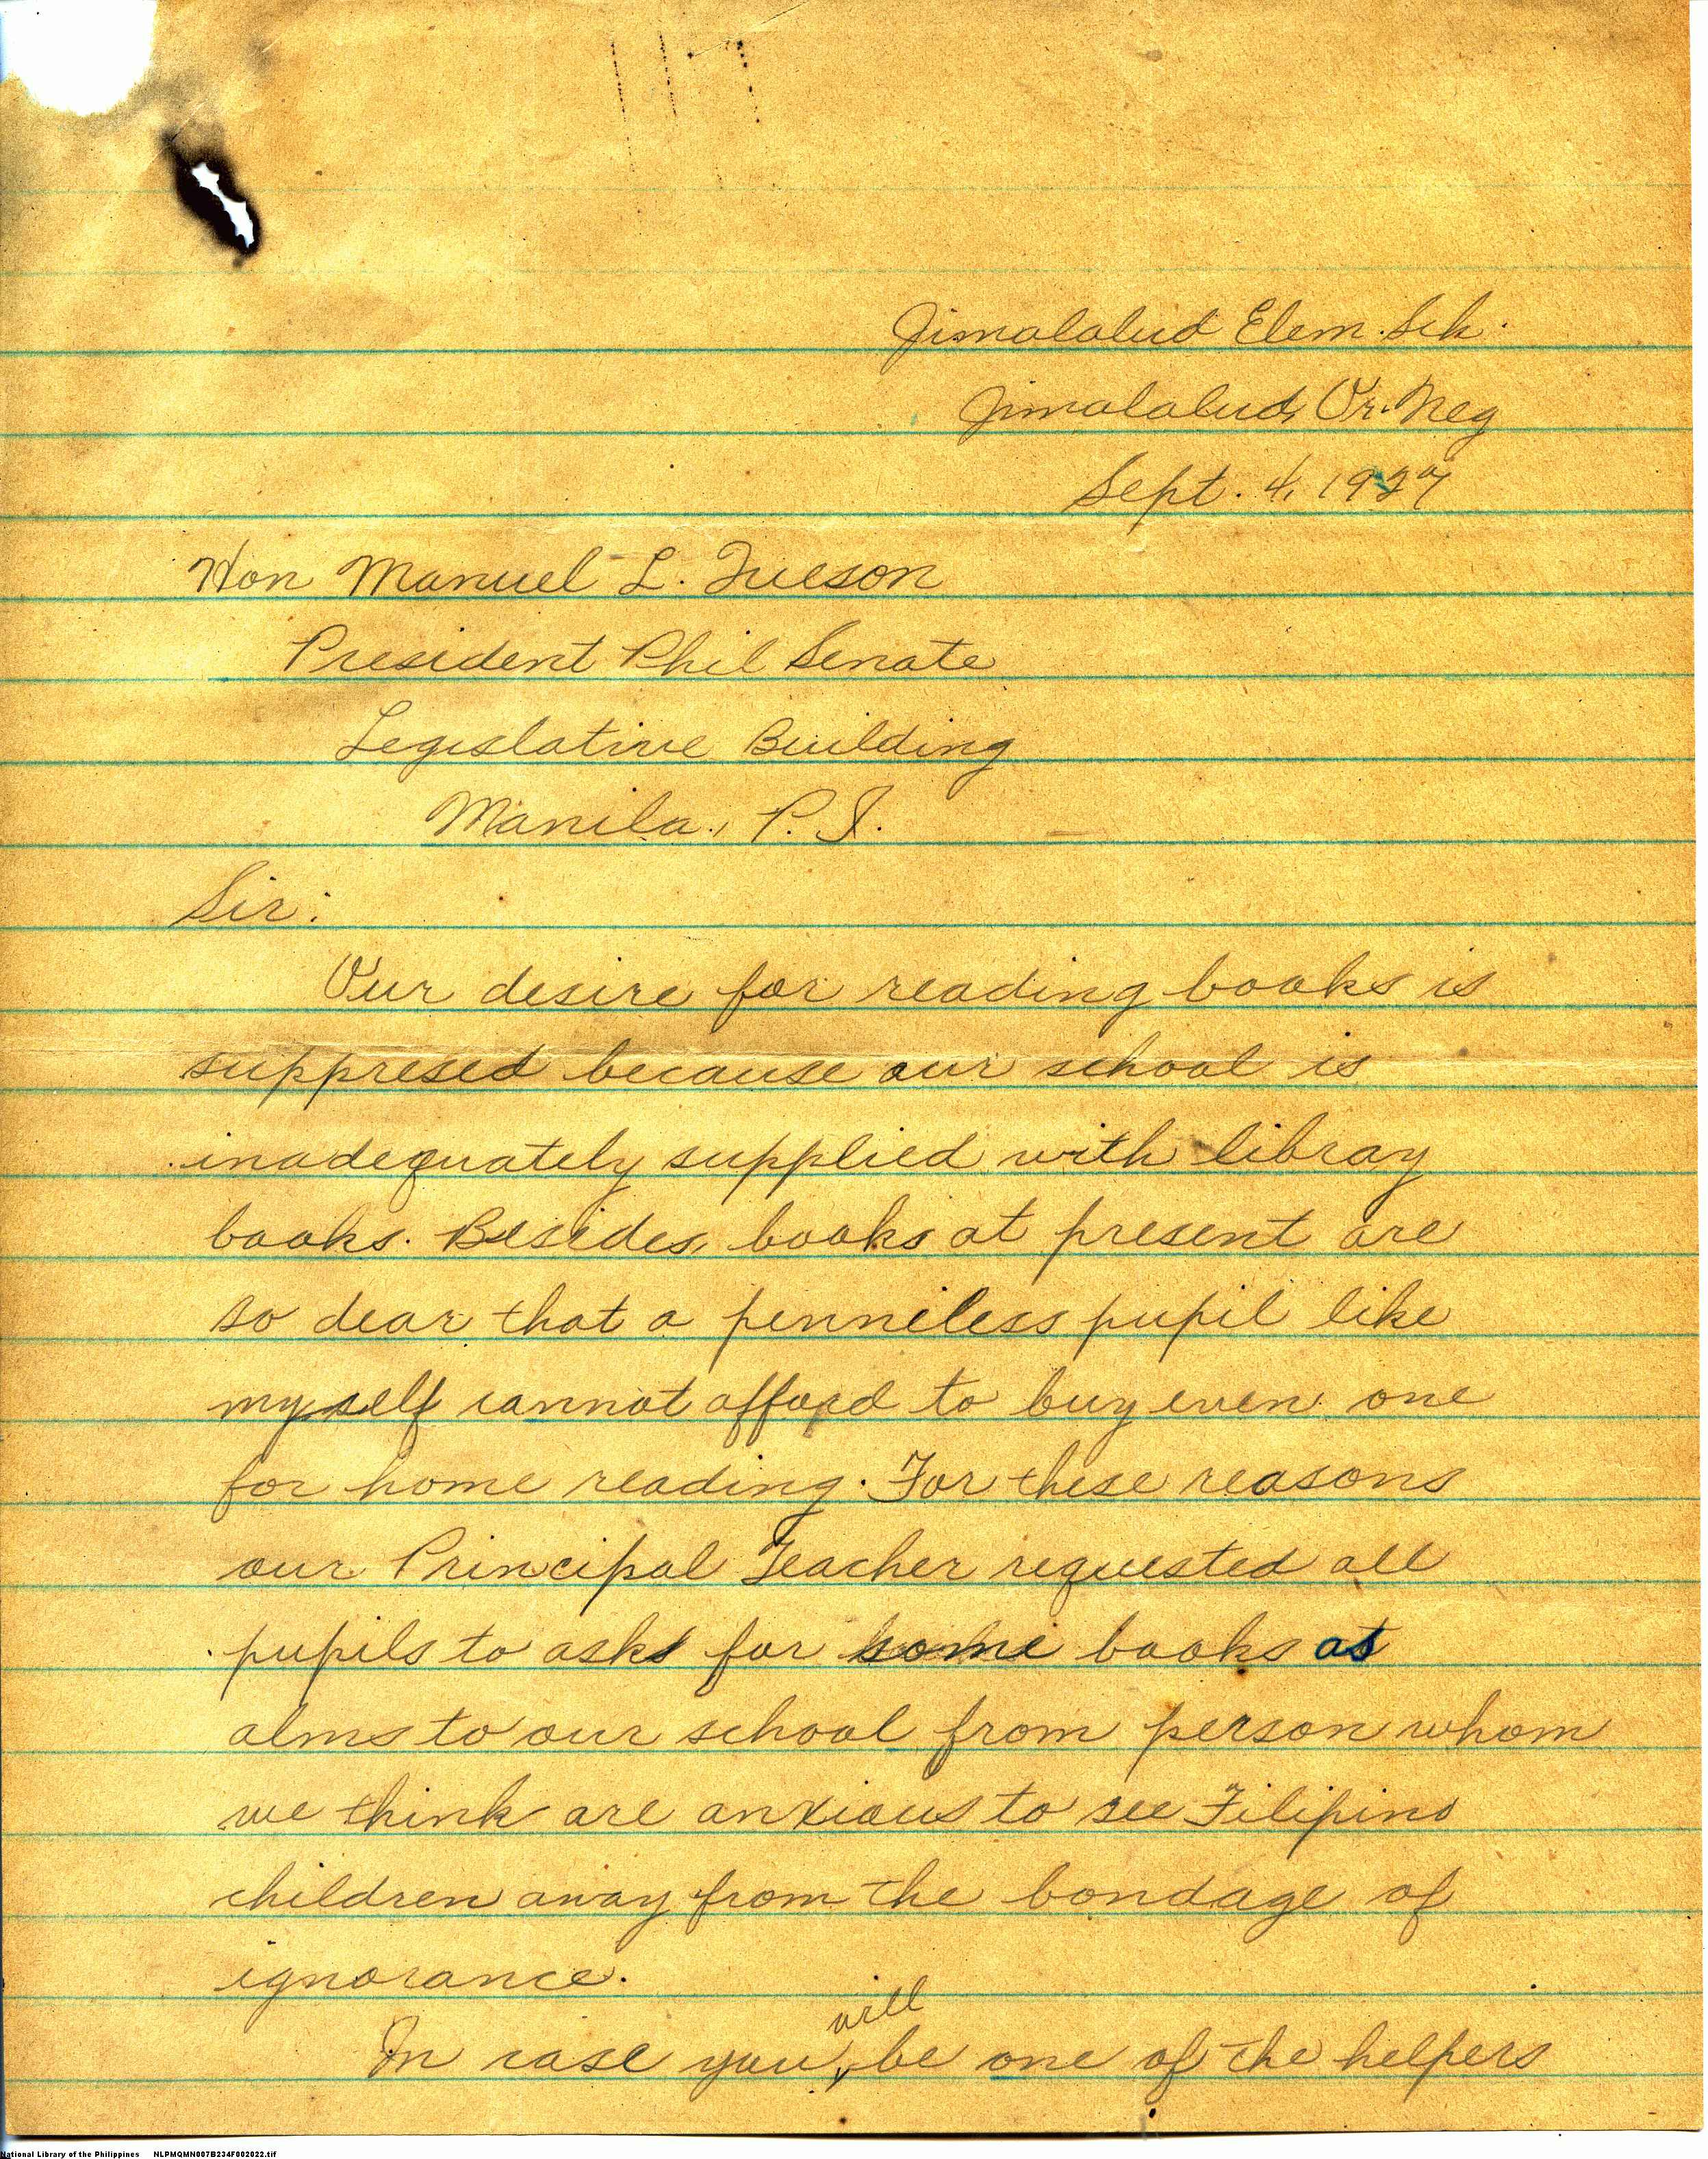 Jimalalud Elem. Sch.
Jimalalud, Or. Neg
Sept. 4, 1927
Hon Manuel L. Queson
President Phil Senate
Legislative Building
Manila., P. I.
Sir:
Our desire for reading books is
suppresed because our school is
inadequately supplied with libray
books. Besides, books at present are
so dear that a penniless pupil like
myself cannot afford to buy even one
for home reading. For these reasons
our Principal Teacher requested all
pupils to ask for some books as
alms to our school from person whom
we think are anxious to see Filipino
children away from the bondage of
ignorance.
In case you will be one of the helpers
National Library of the Philippines NLPMQMN007B234F002022.tif